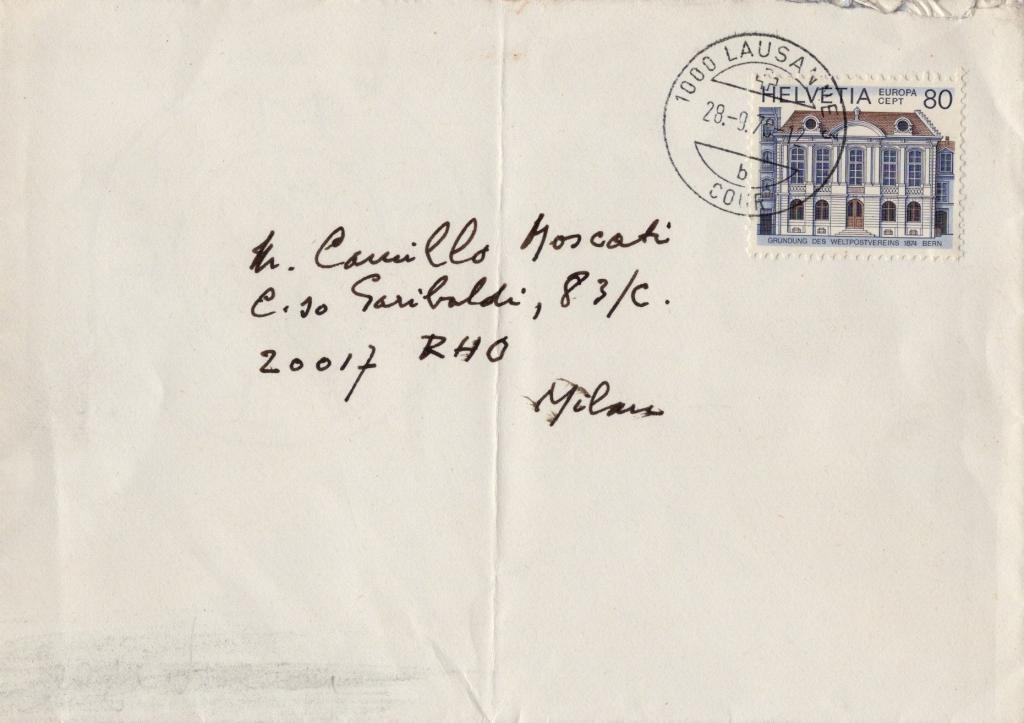 1000 LAUSANNE
28.-9.78-12
b
COUR
HELVETIA EUROPA CEPT 80
GRÜNDUNG DES WELTPOSTVEREINS 1874 BERN
M. Camillo Moscati
C.so Garibaldi, 83/C.
20017 RHO
Milan